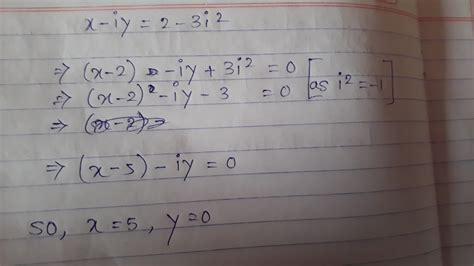 x-iy = 2-3i²
⇒ (x-2) -iy+3i² = 0
⇒ (x-2) -iy-3 = 0 [as i²=-1]
⇒ (x-2)
⇒ (x-5)-iy=0
so, x=5, y=0